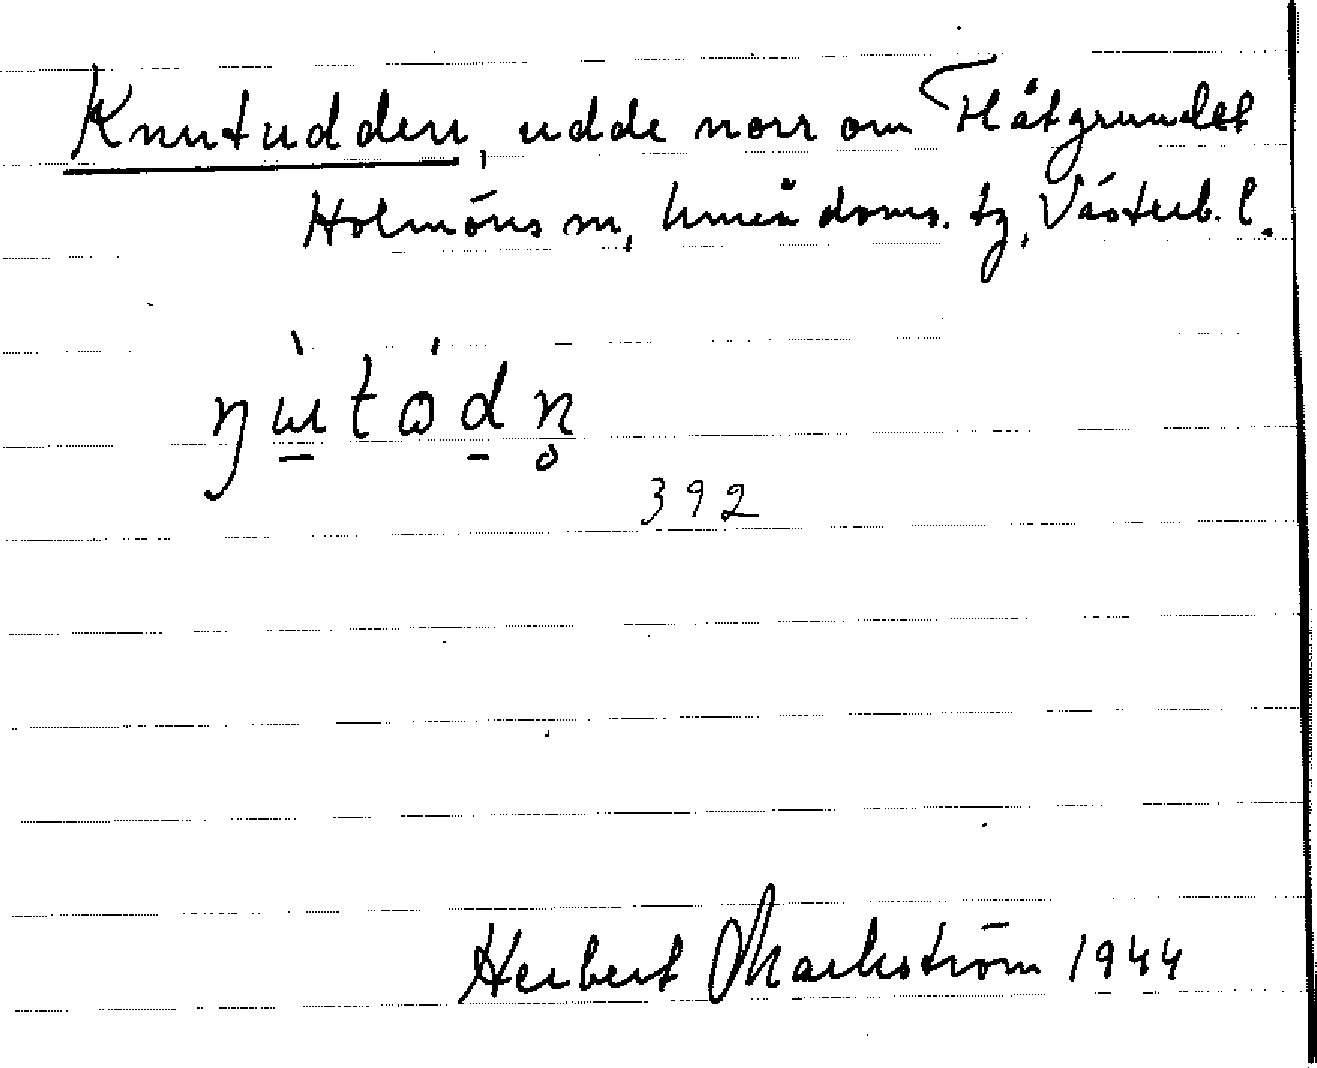 Knutudden, udde norr om Flåtgrundet
Holmöns sn, Umeå doms. tg, Västerb. l.
392
Herbert Markström 1944